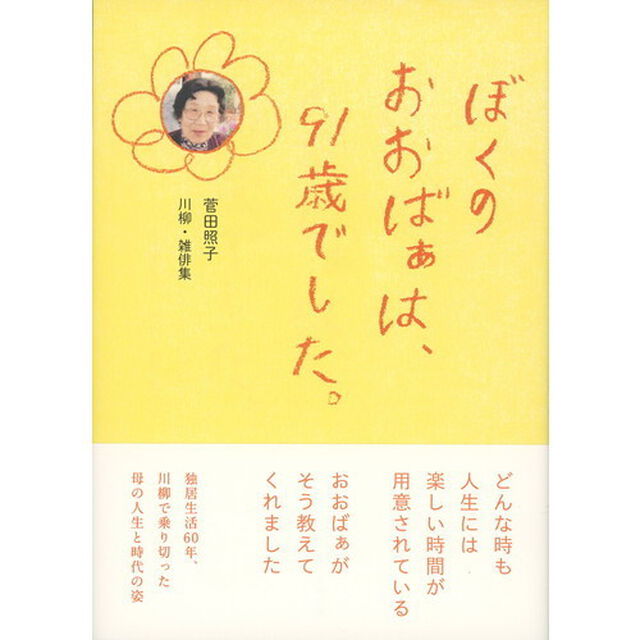 ぼくの
おおばぁは、
91歳でした。
菅田照子
川柳・雑俳集
どんな時も
人生には
楽しい時間が
用意されている
おおばぁが
そう教えて
くれました
独居生活60年、
川柳で乗り切った
母の人生と時代の姿